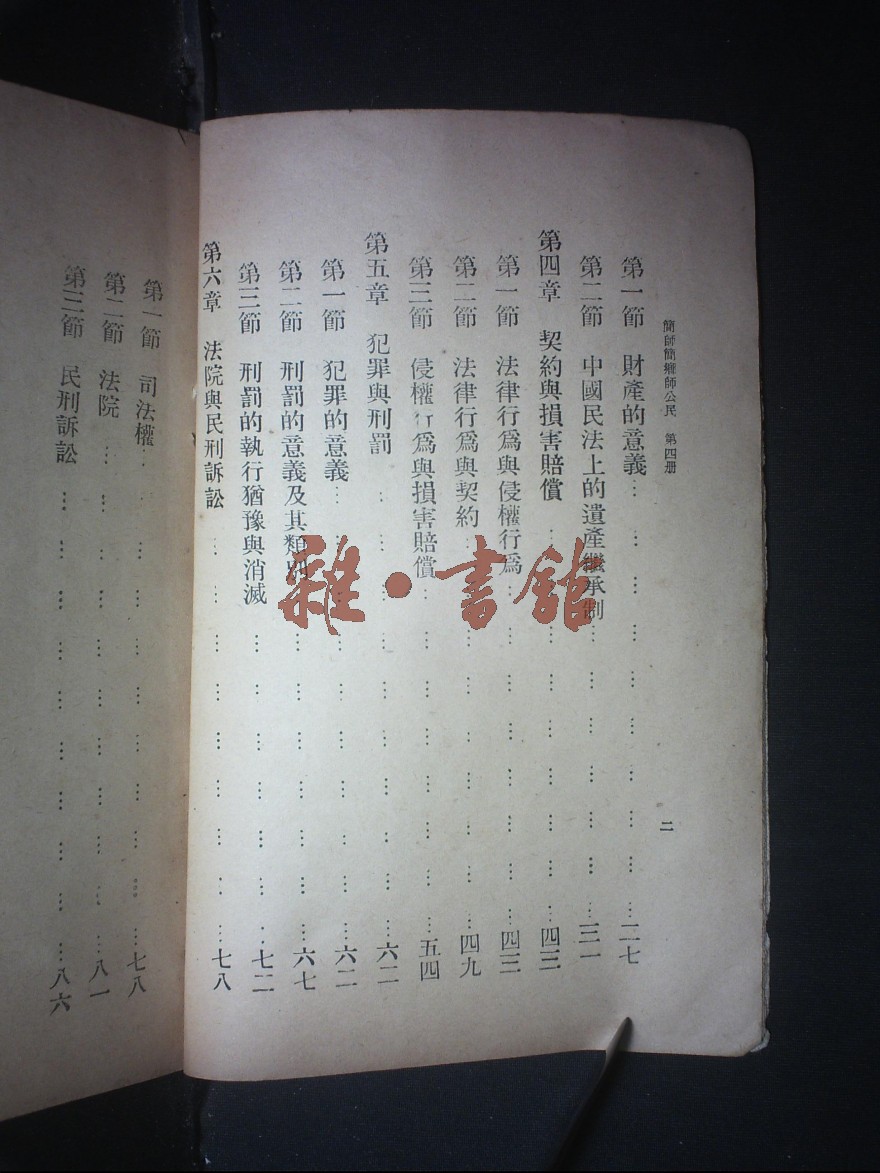 簡師簡鄉師公民 第四册
二
第一節 財產的意義……………………二七
第二節 中國民法上的遺產繼承制……………………三一
第四章 契約與損害賠償……………………四三
第一節 法律行爲與侵權行爲……………………四三
第二節 法律行爲與契約……………………四九
第三節 侵權行爲與損害賠償……………………五四
第五章 犯罪與刑罰……………………六二
第一節 犯罪的意義……………………六二
第二節 刑罰的意義及其類別……………………六七
第三節 刑罰的執行猶豫與消滅……………………七二
第六章 法院與民刑訴訟……………………七八
第一節 司法權……………………七八
第二節 法院……………………八一
第三節 民刑訴訟……………………八六
雜·書館